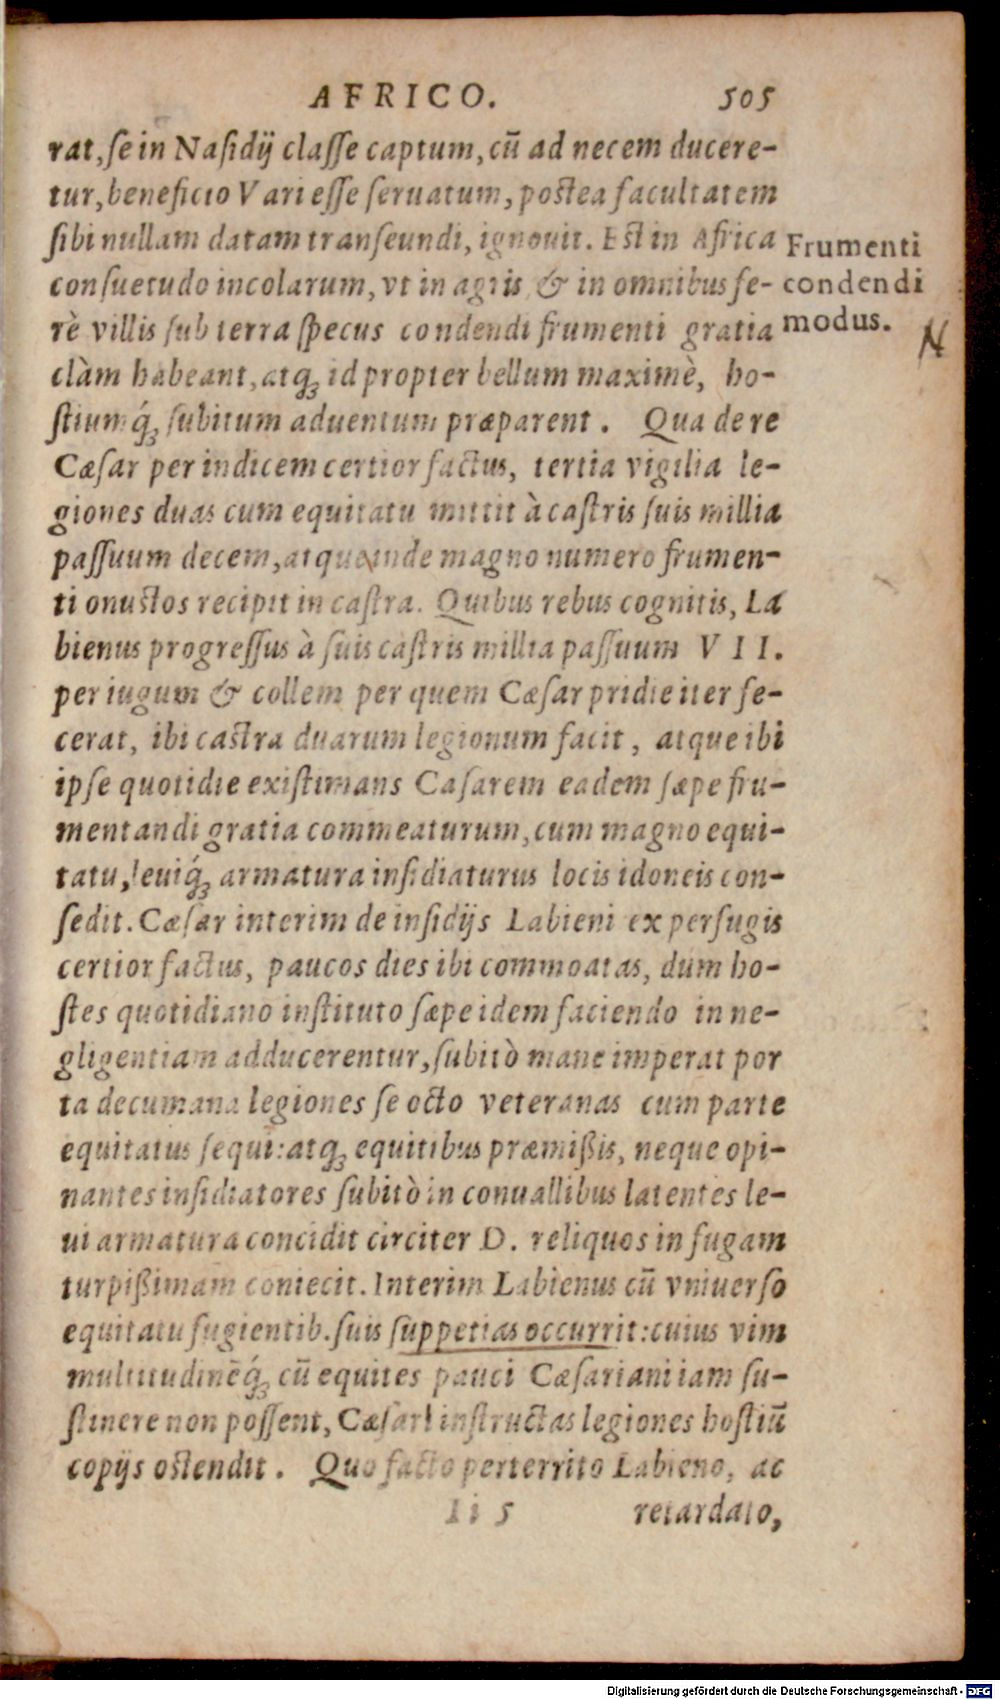 AFRICO. 505
rat, se in Nasidij classe captum, cū ad necem ducere-
tur, beneficio Vari esse seruatum, postea facultatem
sibi nullam datam transeundi, ignouit. Est in Africa
consuetudo incolarum, vt in agris & in omnibus fe-
rè villis sub terra specus condendi frumenti gratia
clàm habeant, atq; id propter bellum maximè, ho-
stiumq́; subitum aduentum præparent. Qua de re
Cæsar per indicem certior factus, tertia vigilia le-
giones duas cum equitatu mittit à castris suis millia
passuum decem, atque inde magno numero frumen-
ti onustos recipit in castra. Quibus rebus cognitis, La
bienus progressus à suis castris millia passuum VII.
per iugum & collem per quem Cæsar pridie iter fe-
cerat, ibi castra duarum legionum facit, atque ibi
ipse quotidie existimans Casarem eadem sæpe fru-
mentandi gratia commeaturum, cum magno equi-
tatu, leuiq́; armatura insidiaturus locis idoneis con-
sedit. Cæsar interim de insidijs Labieni ex perfugis
certior factus, paucos dies ibi commoatas, dum ho-
stes quotidiano instituto sæpe idem faciendo in ne-
gligentiam adducerentur, subitò mane imperat por
ta decumana legiones se octo veteranas cum parte
equitatus sequi: atq; equitibus præmißis, neque opi-
nantes insidiatores subitò in conuallibus latentes le-
ui armatura concidit circiter D. reliquos in fugam
turpißimam coniecit. Interim Labienus cū vniuerso
equitatu fugientib. suis suppetias occurrit: cuius vim
multitudinēq́; cū equites pauci Cæsariani iam su-
stinere non possent, Cæsar instructas legiones hostiū
copijs ostendit. Quo facto perterrito Labieno, ac
Ii 5 retardato,
Frumenti
condendi
modus.
N
Digitalisierung gefördert durch die Deutsche Forschungsgemeinschaft - DFG